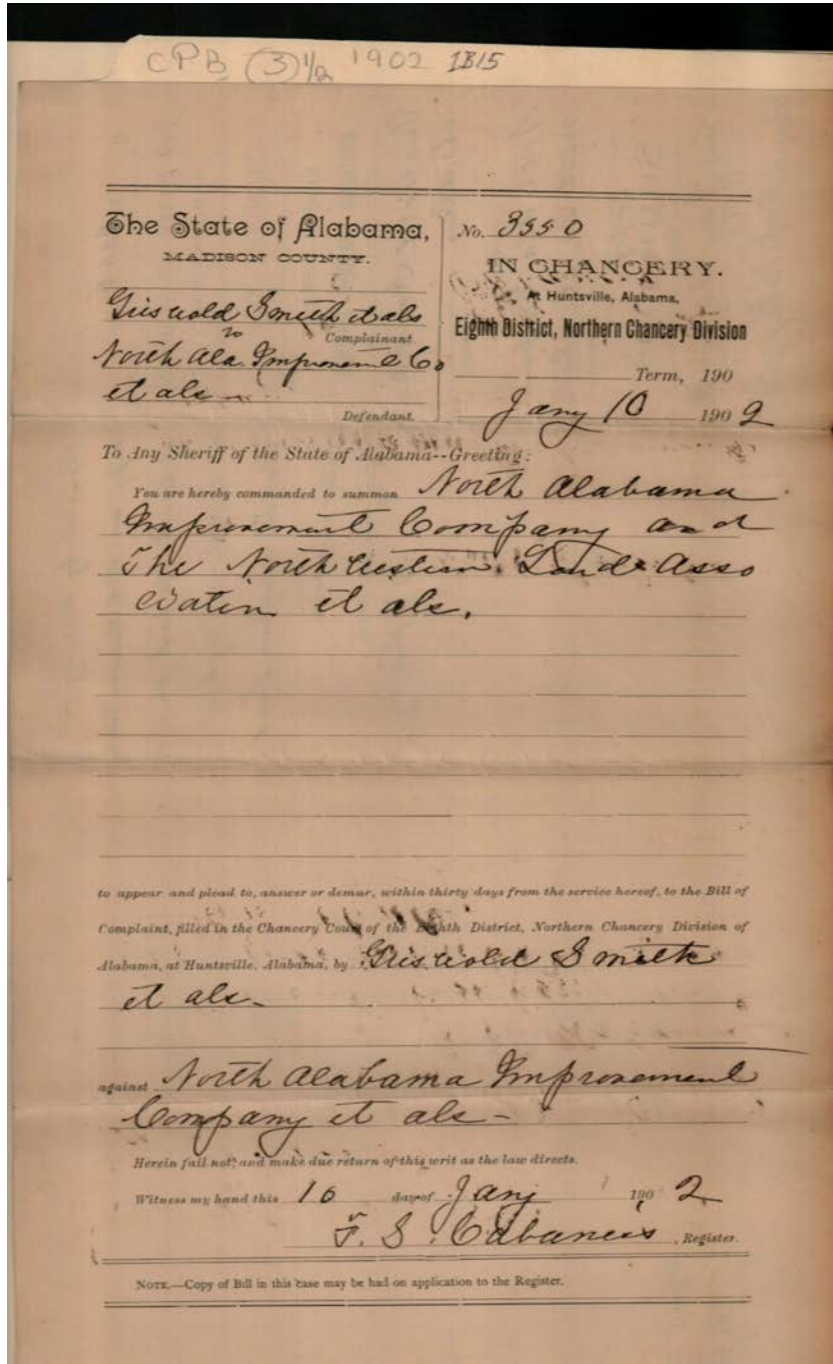 CPB (3) 1/2 1902 1B15
The State of Alabama,
MADISON COUNTY.
Griswold Smith et als
Complainant
vs
North Ala. Improvement Co
et als
Defendant.
No. 3550
IN CHANCERY.
At Huntsville, Alabama,
Eighth District, Northern Chancery Division
Term, 190
Jany 10 1902
To Any Sheriff of the State of Alabama--Greeting:
You are hereby commanded to summon North Alabama
Improvement Company and
The North Western Land Asso
ciation et als.
to appear and plead to, answer or demur, within thirty days from the service hereof, to the Bill of
Complaint, filled in the Chancery Court of the Eighth District, Northern Chancery Division of
Alabama, at Huntsville, Alabama, by Griswold Smith
et als-
against North Alabama Improvement
Company et als-
Herein fail not; and make due return of this writ as the law directs.
Witness my hand this 10 day of Jany 1902
F. S. Cabaneis, Register.
NOTE.—Copy of Bill in this case may be had on application to the Register.